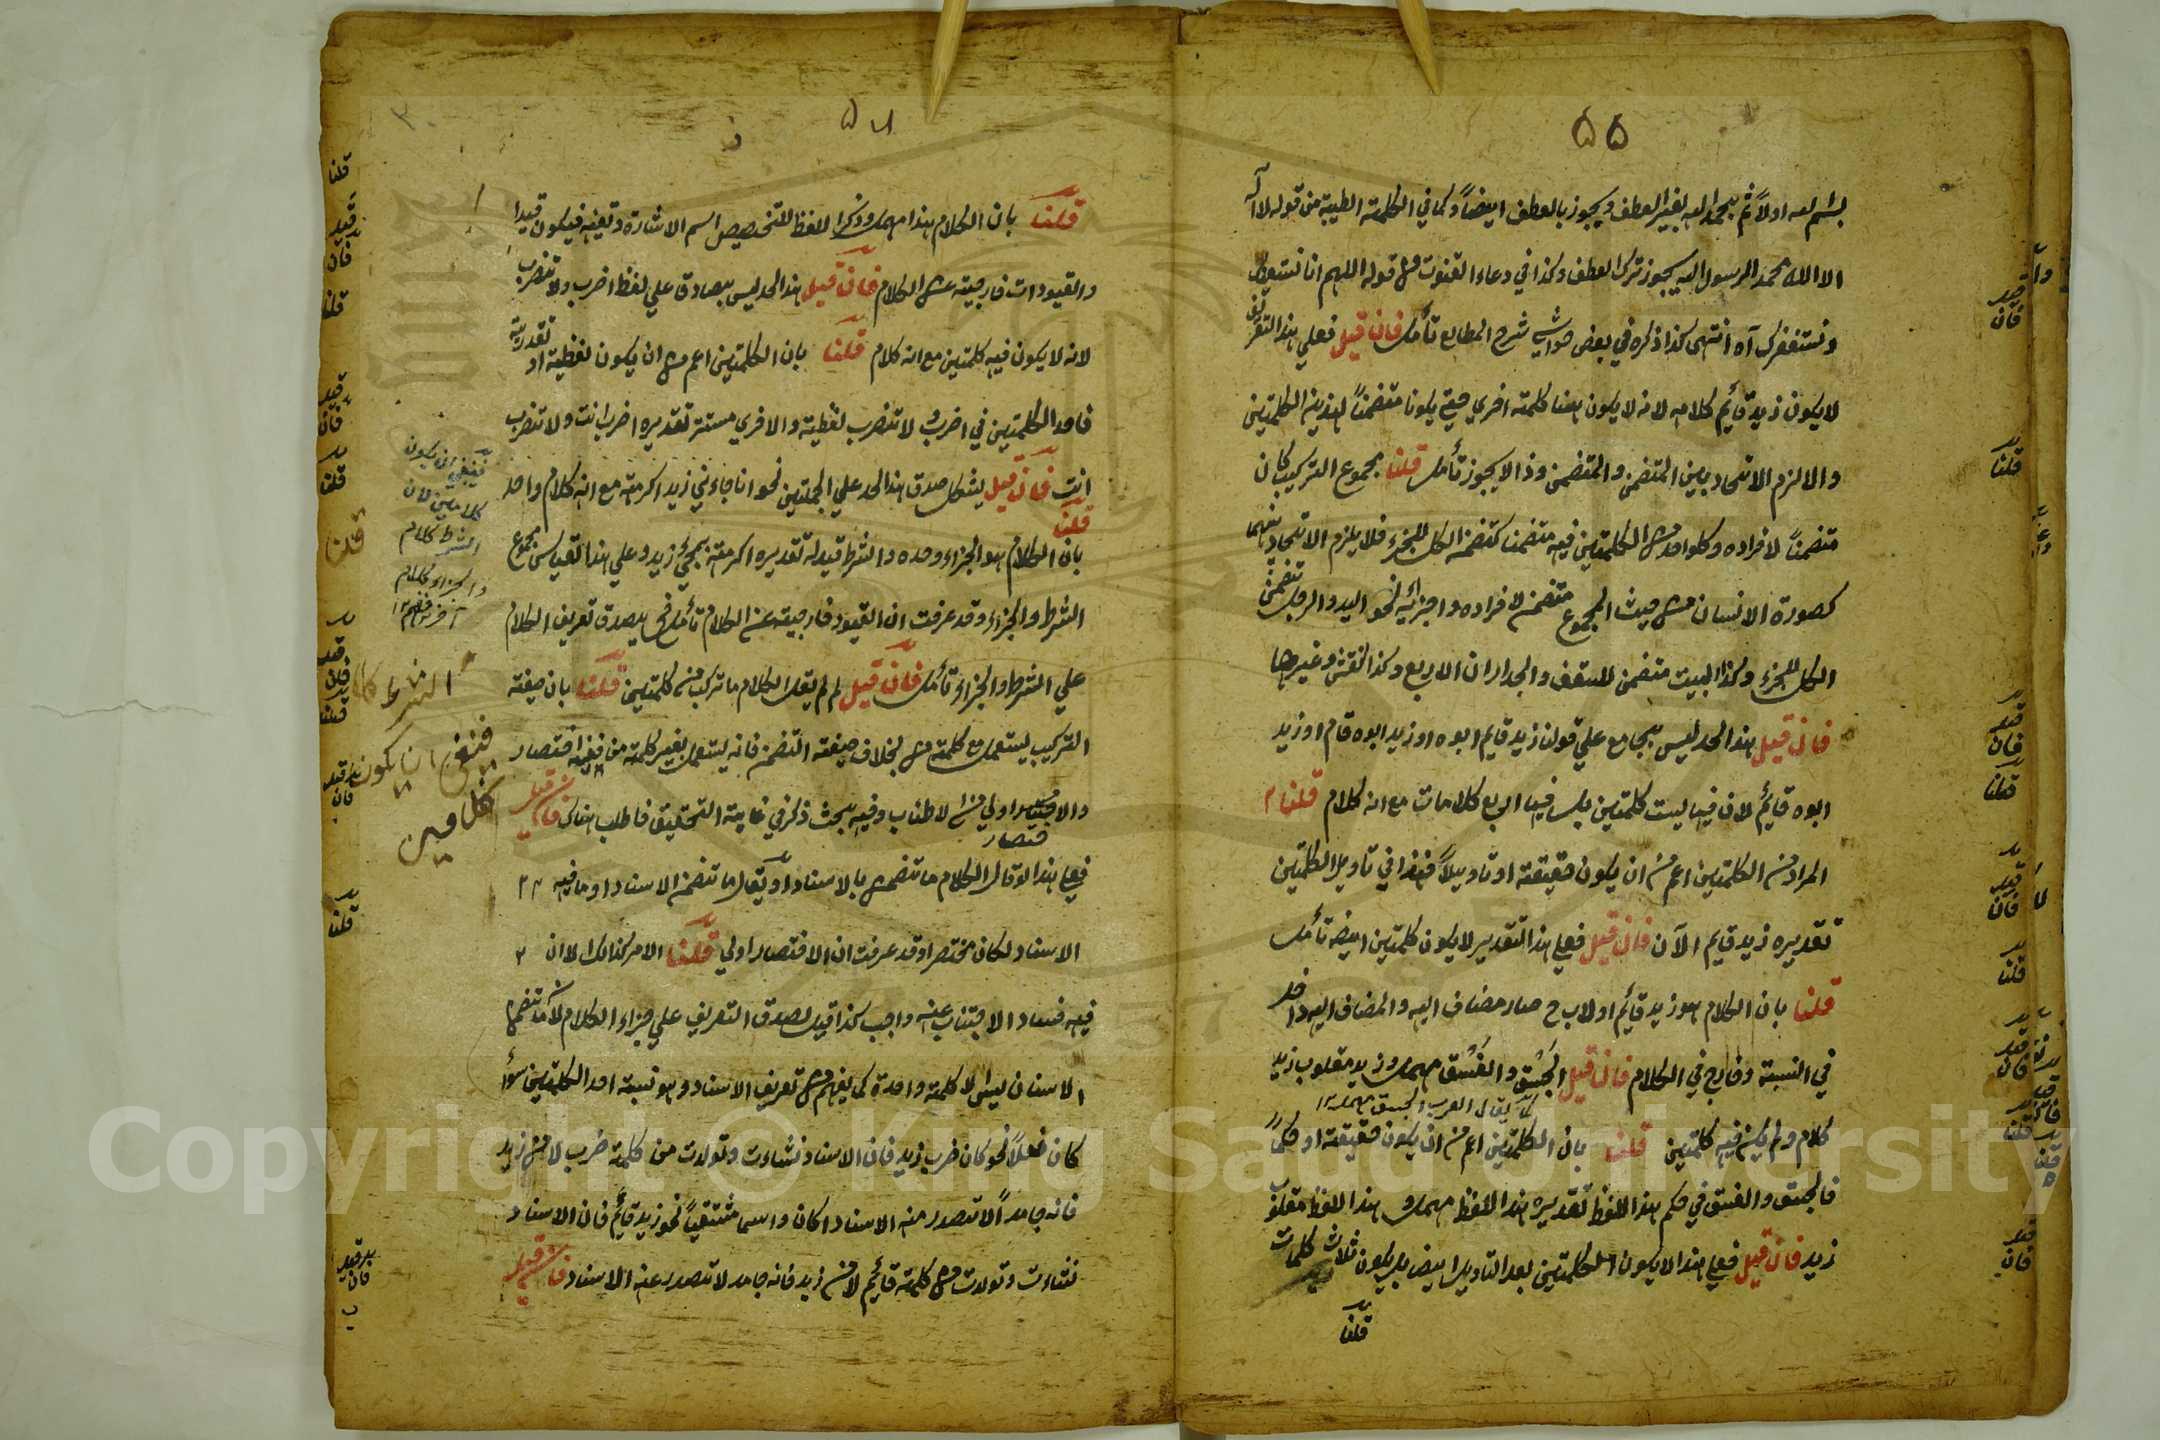 ٥٥
بسم الله اولاً ثم بحمد الله بغير العطف ويجوز بالعطف ايضاً وكما في الكلمة الطيبة من قوله لا اله
الا الله محمد الرسول الله يجوز ترك العطف وكذا في دعاء القنوت من قوله اللهم انا نستعينك
ونستغفرك آه انتهى كذا ذكره في بعض حواشي شرح المطالع تأمل فان قيل فعلي هذا التعريف
لا يكون زيد قائم كلامه لانه لا يكون هنا كلمة اخري حتي يكونا متضمناً لهذين الكلمتين
والا لزم الاتحاد بين المتضمن والمتضمن وذا لا يجوز تأمل قلنا مجموع التركيب كان
متضمناً لافراده وكلوا حد من الكلمتين فيه متضمنا كتضمن الكل للجزء فلا يلزم الاتحاد بينهما
كصورة الانسان من حيث المجموع متضمن لافراده واجزائه نحو اليد والرجل تضمن
الكل للجزء وكذا البيت متضمن للسقف والجداران الاربع وكذا النقش وغيرها
فان قيل هذا الحد ليس بجامع علي قولنا زيد قايم ابوه او زيد ابوه قام او زيد
ابوه قايم لان فيها ليست كلمتين بل فيها اربع كلامات مع انه كلام قلنا
المراد من الكلمتين اعم من ان يكون حقيقة او تاويلاً فهذا في تاويل الكلمتين
تقديره زيد قايم الآن فان قيل فعلي هذا التقدير لا يكون كلمتين ايضا تأمل
قلنا بان الكلام هو زيد قائم او لاب ح صار مضاف اليه والمضاف اليه داخل
في النسبة وخارج في الكلام فان قيل الجسق والفسق مهمل وزيد مقلوب زيد
كما يقال العرب الجسق مهمل ١٢
كلام ولم يكن فيه كلمتين قلنا بان الكلمتين اعم من ان يكون حقيقة او حكماً
فالجسق والفسق في حكم هذا اللفظ تقديره هذا اللفظ مهمل وهذا اللفظ مقلوب
زيد فان قيل فعلي هذا لا يكون الكلمتين بعد التاويل ايضا بل يكون ثلاث كلمات
قلنا
قلنا بان الكلام هذا مهمل وذكر اللفظ للتخصيص اسم الاشارة وتعينه فيكون قيدا
والقيودات خارجية عن الكلام فان قيل هذا الحد ليس بصادق علي لفظ اضرب ولا تضرب
لانه لا يكون فيه كلمتين مع انه كلام قلنا بان الكلمتين اعم من ان يكون لفظية او تقديرية
فاحد الكلمتين في اضرب ولا تضرب لفظية والاخري مستتر تقديره اضرب انت ولا تضرب
انت فان قيل يشكل صدق هذا الحد علي الجملتين نحو انا جاءني زيد اكرمته مع انه كلام واحد
قلنا
بان الكلام هو الجزاء وحده والشرط قيد له تقديره اكرمته بمجيء زيد وعلي هذا القياس مجموع
الشرط والجزاء وقد عرفت ان القيود خارجية عن الكلام تأمل فح يصدق تعريف الكلام
علي الشرط والجزاء تأمل فان قيل لم لم يقل الكلام ما تركب من كلمتين قلنا بان صيغة
التركيب يستعمل مع كلمة من بخلاف صيغة التضمن فانه يستعمل بغير كلمة من ففيه اختصار
والاختصار اولي من الاطناب وفيه بحث ذكر في غاية التحقيق فاطلب هناك فان قيل
فعلي هذا لو قال الكلام ما تضمن بالاسناد او يقال ما تضمن الاسناد او ما فيه
الاسناد لكان مختصرا وقد عرفت ان الاختصار اولي قلنا الامر كذالك لاان
فيه فساد الاجتناب عنه واجب كذا قيل لصدق التعريف علي جزاء الكلام
الاسنان ليس الا كلمة واحدة كما يفهم من تعريف الاسناد وهو نسبة احد الكلمتين سواء
كان فعلاً نحو كان ضرب زيد فان الاسناد نشاءت وتولدت من كلمة ضرب لا من زيد
فانه جامد لا تصدر منه الاسناد او كان واسما مشتقياً نحو زيد قائم فان الاسناد
نشاءت وتولدت من كلمة قائم لا من زيد فانه جامد لا تصدر عنه الاسناد فان قيل
فينبغي ان يكون
كلامين لان
الشرط كلام
والجزاء كلام
الشرط كلا
فينبغي ان يكون
كلامين